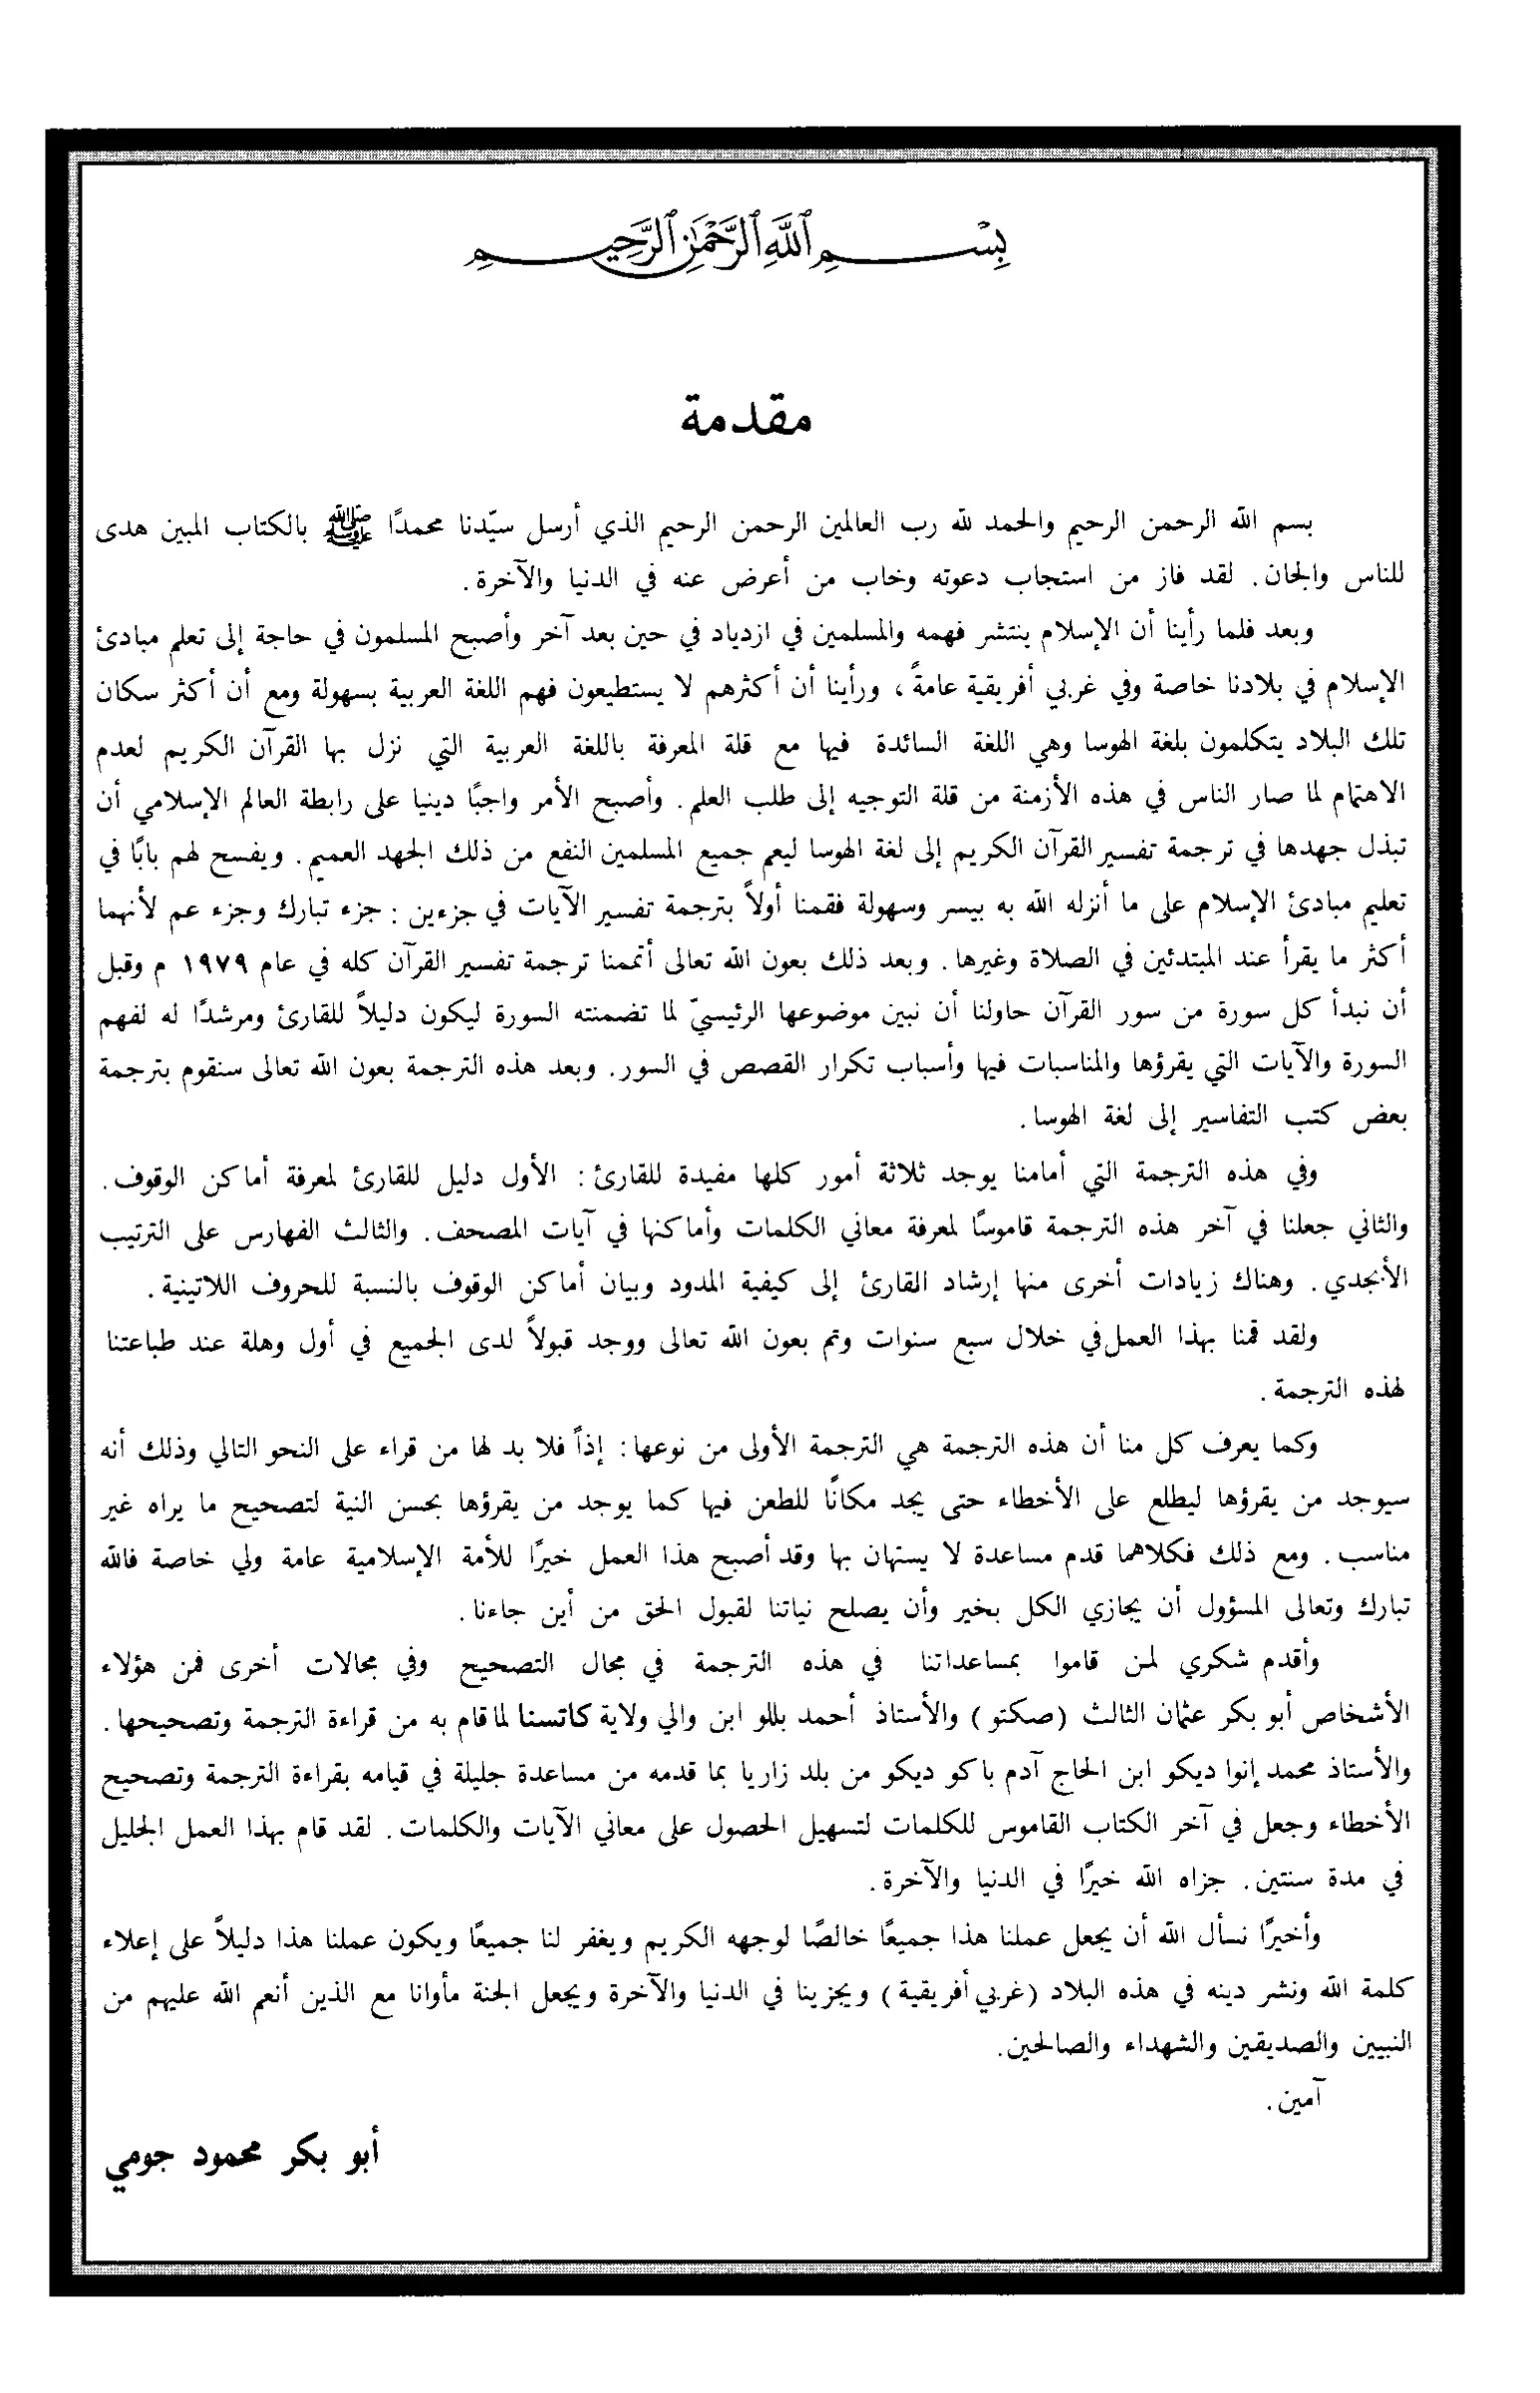 بِسْمِ ٱللَّهِ ٱلرَّحْمَٰنِ ٱلرَّحِيمِ
مقدمة
بسم الله الرحمن الرحيم والحمد لله رب العالمين الرحمن الرحيم الذي أرسل سيّدنا محمدًا ﷺ بالكتاب المبين هدى
للناس والجان. لقد فاز من استجاب دعوته وخاب من أعرض عنه في الدنيا والآخرة.
وبعد فلما رأينا أن الإسلام ينتشر فهمه والمسلمين في ازدياد في حين بعد آخر وأصبح المسلمون في حاجة إلى تعلم مبادئ
الإسلام في بلادنا خاصة وفي غربي أفريقية عامةً، ورأينا أن أكثرهم لا يستطيعون فهم اللغة العربية بسهولة ومع أن أكثر سكان
تلك البلاد يتكلمون بلغة الهوسا وهي اللغة السائدة فيها مع قلة المعرفة باللغة العربية التي نزل بها القرآن الكريم لعدم
الاهتمام لما صار الناس في هذه الأزمنة من قلة التوجيه إلى طلب العلم. وأصبح الأمر واجبًا دينيا على رابطة العالم الإسلامي أن
تبذل جهدها في ترجمة تفسير القرآن الكريم إلى لغة الهوسا ليعم جميع المسلمين النفع من ذلك الجهد العميم. ويفسح لهم بابًا في
تعليم مبادئ الإسلام على ما أنزله الله به بيسر وسهولة فقمنا أولاً بترجمة تفسير الآيات في جزءين : جزء تبارك وجزء عم لأنهما
أكثر ما يقرأ عند المبتدئين في الصلاة وغيرها. وبعد ذلك بعون الله تعالى أتممنا ترجمة تفسير القرآن كله في عام ١٩٧٩ م وقبل
أن نبدأ كل سورة من سور القرآن حاولنا أن نبين موضوعها الرئيسيّ لما تضمنته السورة ليكون دليلاً للقارئ ومرشدًا له لفهم
السورة والآيات التي يقرؤها والمناسبات فيها وأسباب تكرار القصص في السور. وبعد هذه الترجمة بعون الله تعالى سنقوم بترجمة
بعض كتب التفاسير إلى لغة الهوسا.
وفي هذه الترجمة التي أمامنا يوجد ثلاثة أمور كلها مفيدة للقارئ: الأول دليل للقارئ لمعرفة أماكن الوقوف.
والثاني جعلنا في آخر هذه الترجمة قاموسًا لمعرفة معاني الكلمات وأماكنها في آيات المصحف. والثالث الفهارس على الترتيب
الأبجدي. وهناك زيادات أخرى منها إرشاد القارئ إلى كيفية المدود وبيان أماكن الوقوف بالنسبة للحروف اللاتينية.
ولقد قمنا بهذا العمل في خلال سبع سنوات وتم بعون الله تعالى ووجد قبولاً لدى الجميع في أول وهلة عند طباعتنا
لهذه الترجمة.
وكما يعرف كل منا أن هذه الترجمة هي الترجمة الأولى من نوعها: إذاً فلا بد لها من قراء على النحو التالي وذلك أنه
سيوجد من يقرؤها ليطلع على الأخطاء حتى يجد مكانًا للطعن فيها كما يوجد من يقرؤها بحسن النية لتصحيح ما يراه غير
مناسب. ومع ذلك فكلاهما قدم مساعدة لا يستهان بها وقد أصبح هذا العمل خيرًا للأمة الإسلامية عامة ولي خاصة فالله
تبارك وتعالى المسؤول أن يجازي الكل بخير وأن يصلح نياتنا لقبول الحق من أين جاءنا.
وأقدم شكري لمن قاموا بمساعداتنا في هذه الترجمة في مجال التصحيح وفي مجالات أخرى فمن هؤلاء
الأشخاص أبو بكر عثمان الثالث (صكتو) والأستاذ أحمد بللو ابن والي ولاية كاتسنا لما قام به من قراءة الترجمة وتصحيحها.
والأستاذ محمد إنوا ديكو ابن الحاج آدم باكو ديكو من بلد زاريا بما قدمه من مساعدة جليلة في قيامه بقراءة الترجمة وتصحيح
الأخطاء وجعل في آخر الكتاب القاموس للكلمات لتسهيل الحصول على معاني الآيات والكلمات. لقد قام بهذا العمل الجليل
في مدة سنتين. جزاه الله خيرًا في الدنيا والآخرة.
وأخيرًا نسأل الله أن يجعل عملنا هذا جميعًا خالصًا لوجهه الكريم ويغفر لنا جميعًا ويكون عملنا هذا دليلاً على إعلاء
كلمة الله ونشر دينه في هذه البلاد (غربي أفريقية) ويجزينا في الدنيا والآخرة ويجعل الجنة مأوانا مع الذين أنعم الله عليهم من
النبيين والصديقين والشهداء والصالحين.
آمين.
أبو بكر محمود جومي